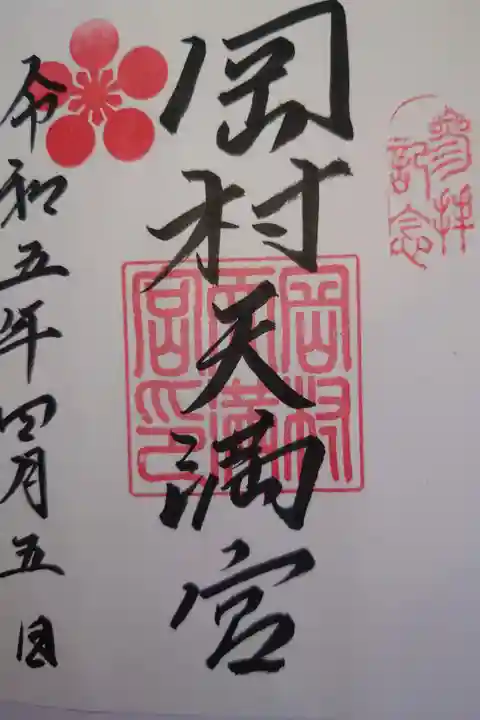 参拝
記念
岡村天満宮
岡村天満宮印
令和五年四月五日